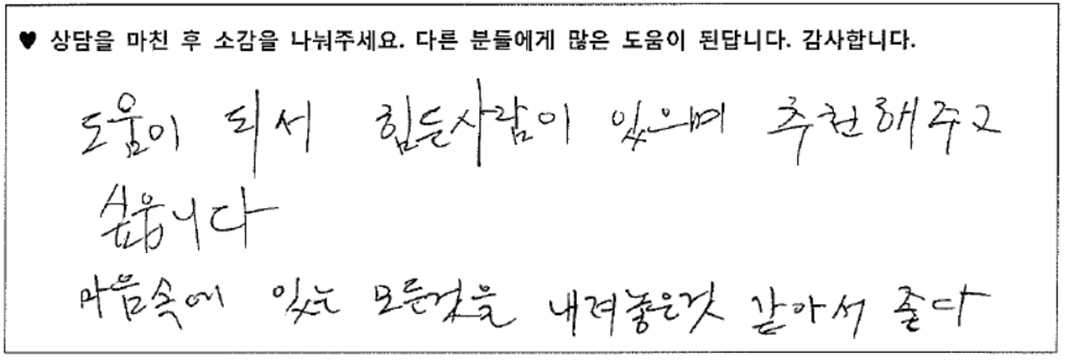 ♥ 상담을 마친 후 소감을 나눠주세요. 다른 분들에게 많은 도움이 된답니다. 감사합니다.
도움이 되서 힘든사람이 있으며 추천해주고
싶읍니다
마음속에 있는 모든것을 내려놓은것 같아서 좋다